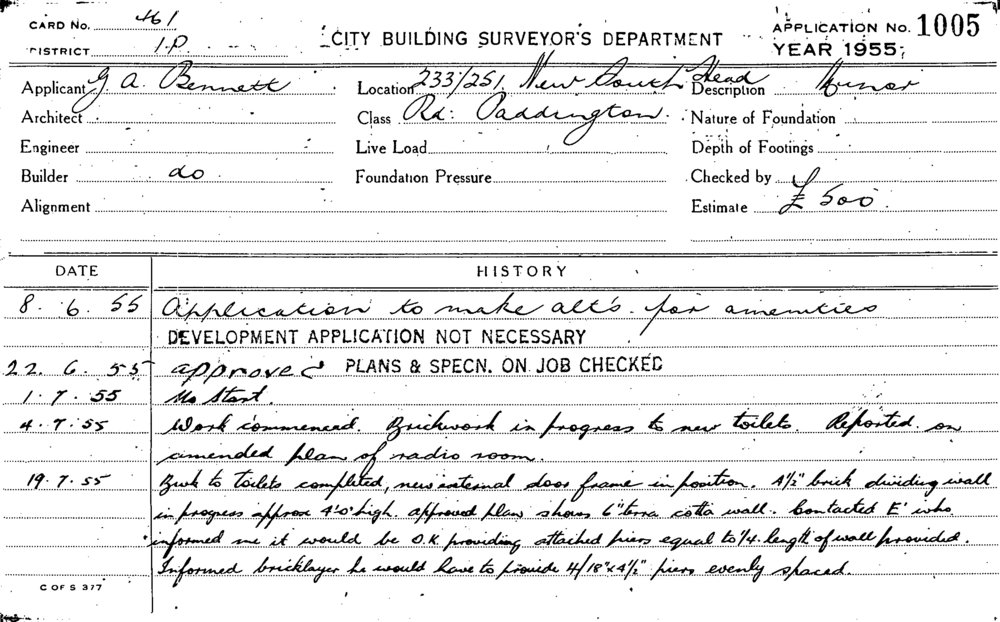 CARD No. 461
DISTRICT I.P.
CITY BUILDING SURVEYOR'S DEPARTMENT
APPLICATION No. 1005
YEAR 1955;
Applicant G. A. Bennett
Location 233/251, New South Head
Description Minor
Architect
Class Rd: Paddington.
Nature of Foundation
Engineer
Live Load
Depth of Footings
Builder do
Foundation Pressure
Checked by
Alignment
Estimate £ 500.
DATE HISTORY
8. 6. 55 Application to make alt's. for amenities
DEVELOPMENT APPLICATION NOT NECESSARY
22. 6. 55 approved PLANS & SPECN. ON JOB CHECKED
1. 7. 55 No Start.
4. 7. 55 Work commenced. Brickwork in progress to new toilets. Reported on
amended plan of radio room.
19. 7. 55 Bwk to toilets completed, new external door frame in position. 4½" brick dividing wall
in progress approx 4'0" high. approved plan shows 6" terra cotta wall. Contacted E' who
informed me it would be O.K. providing attached piers equal to ¼ length of wall provided.
Informed bricklayer he would have to provide 4/18"x4½" piers evenly spaced.
C OF S 377